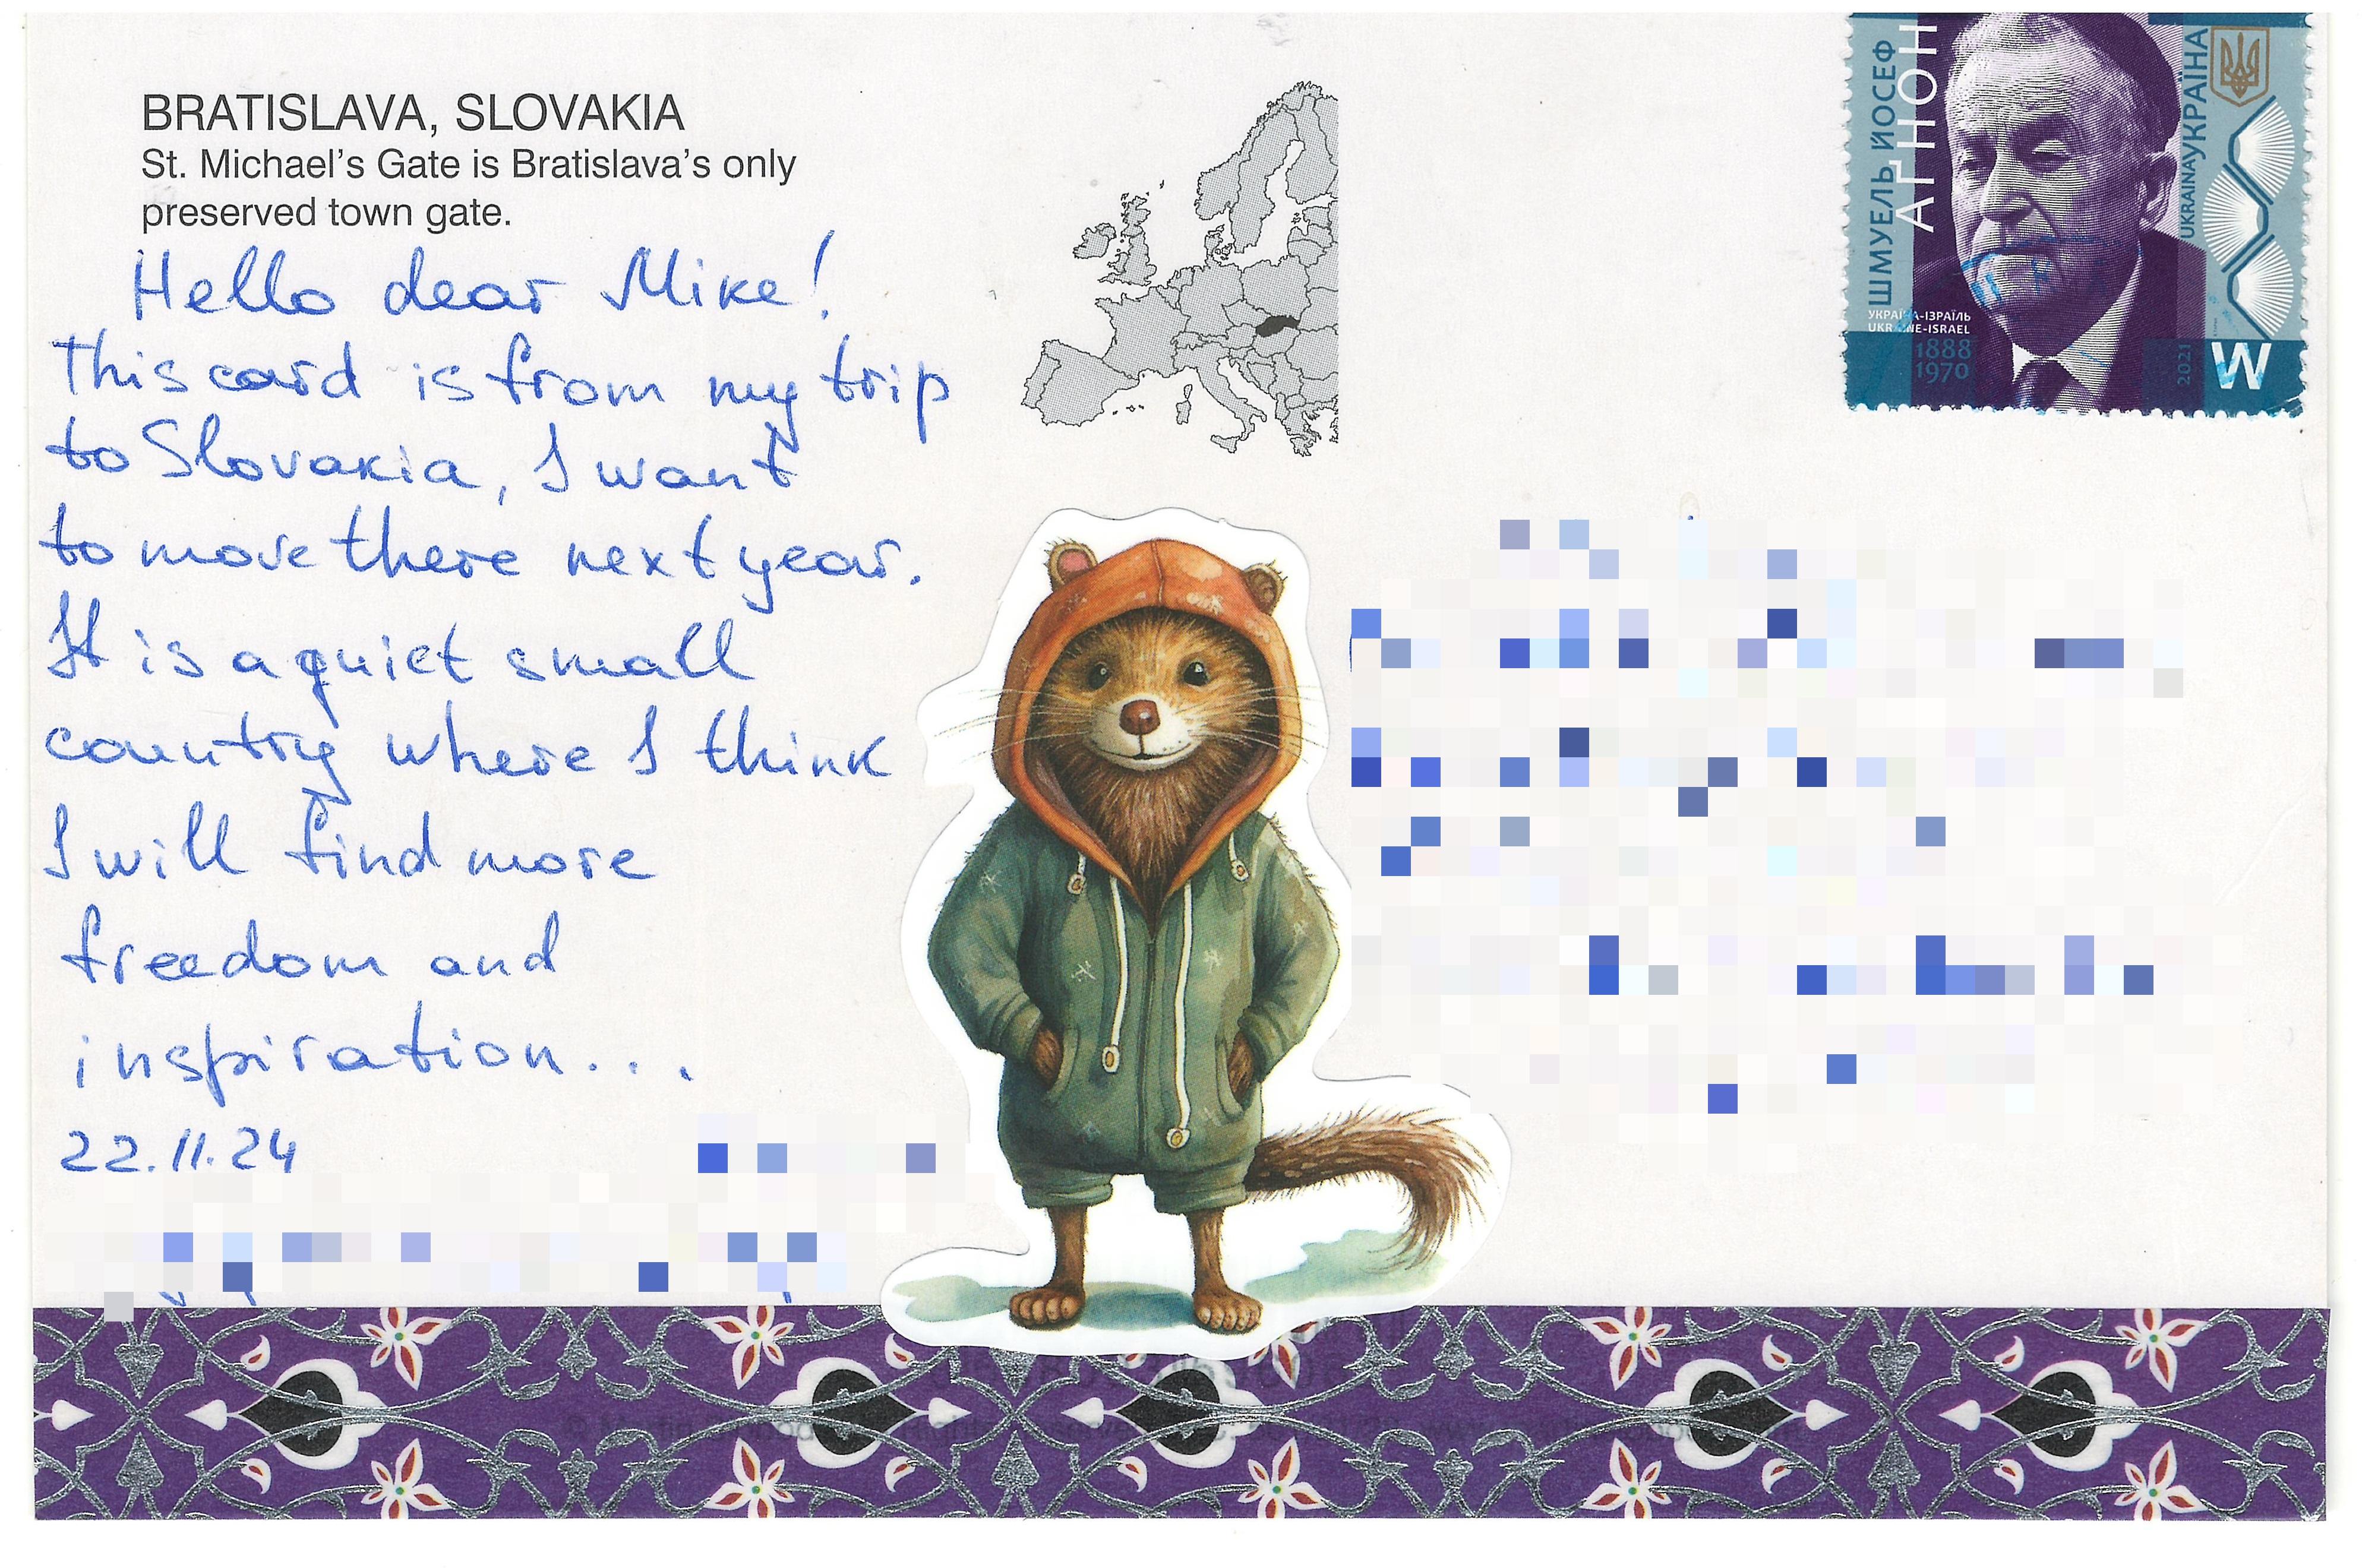 BRATISLAVA, SLOVAKIA
St. Michael's Gate is Bratislava's only
preserved town gate.
Hello dear Mike!
This card is from my trip
to Slovakia, I want
to move there next year.
It is a quiet small
country where I think
I will find more
freedom and
inspiration...
22.11.24
ШМУЕЛЬ ЙОСЕФ
АҐНОН
УКРАЇНА-ІЗРАЇЛЬ
UKRAINE-ISRAEL
1888
1970
УКРАЇНА
UKRAINA
2021
W